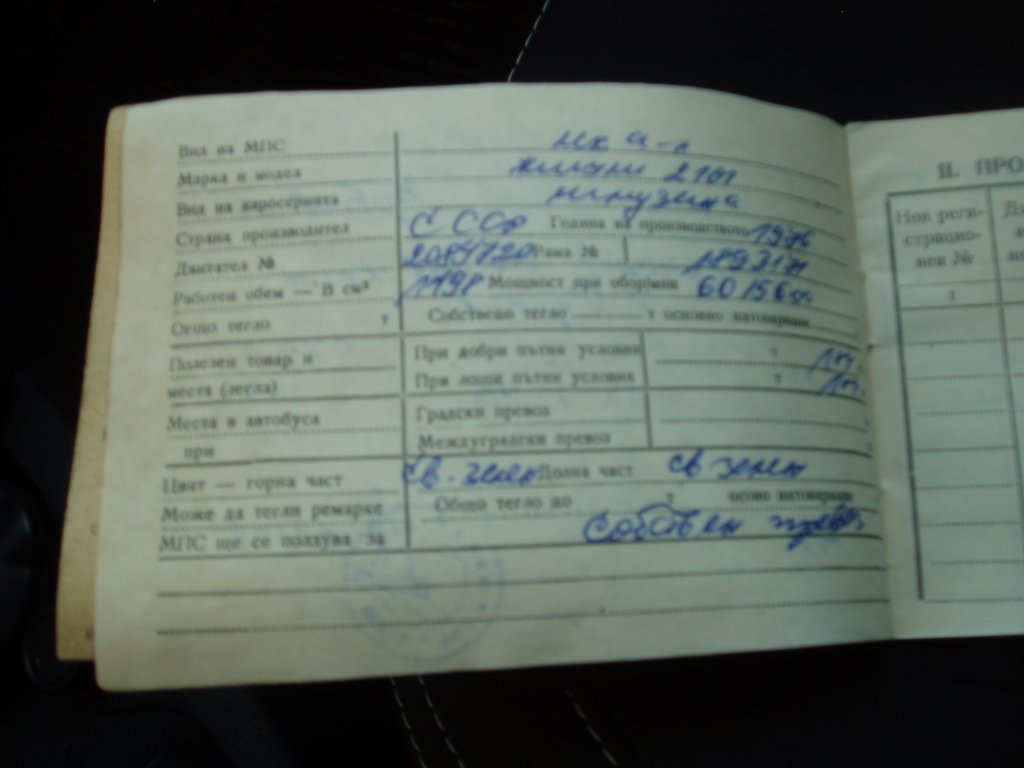 Вид на МПС лк а-л
Марка и модел жигули 2101
Вид на каросерията
Страна производител СССР Година на производството 1976
Двигател № 2084720 Рама №
Работен обем — В см³ 1198 Мощност при обор/мин 60/5600
Общо тегло т Собствено тегло т основно натоварване
Полезен товар и При добри пътни условия т
места (легла) При лоши пътни условия т
Места в автобуса Градски превоз
при Междуградски превоз
Цвят — горна част св. зелен Долна част св зелен
Може да тегли ремарке Общо тегло до т осово натоварване
МПС ще се ползува за собствен превоз
II. ПРО
Нов реги-
страцио-
нен №
1